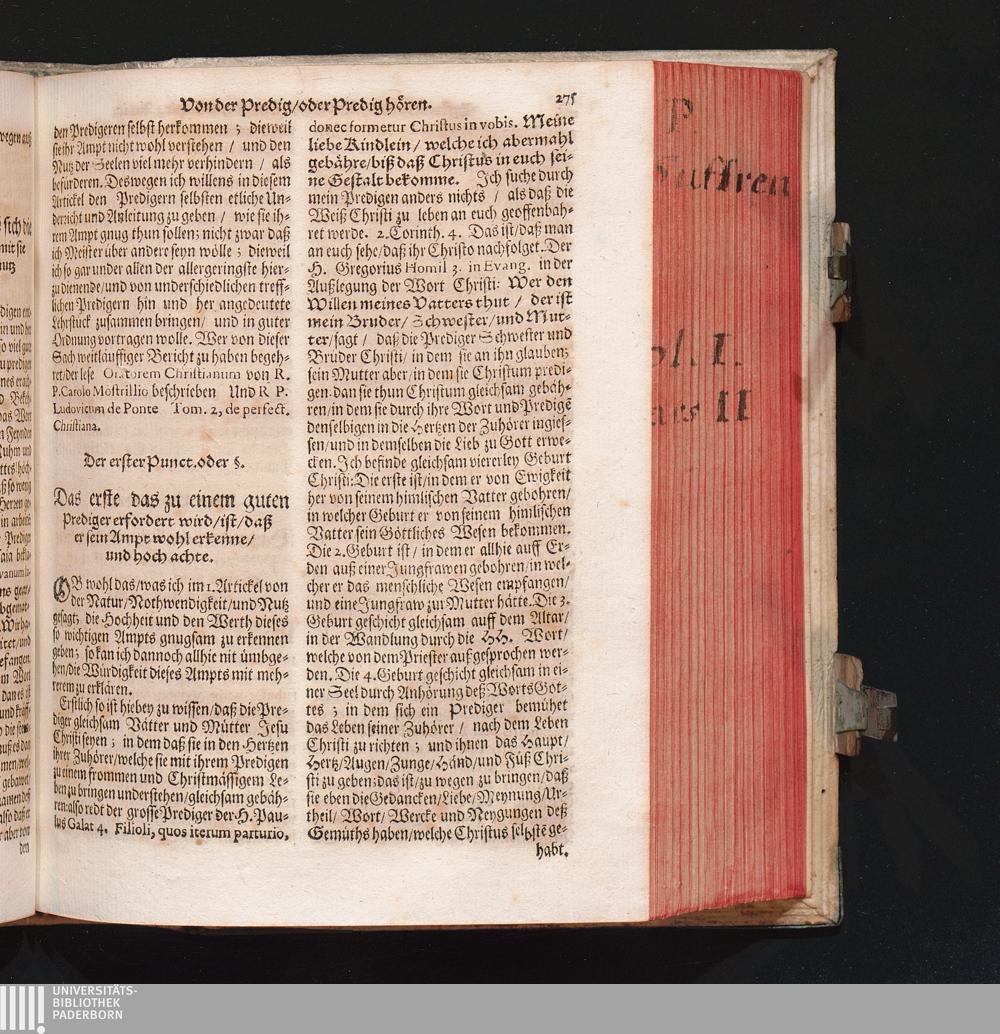 Von der Predig/oder Predig hören.
275
den Predigeren selbst herkommen ; dieweil
sie ihr Ampt nicht wohl verstehen / und den
Nutz der Seelen viel mehr verhindern / als
befürderen. Deswegen ich willens in diesem
Artickel den Predigern selbsten etliche Un-
derricht und Anleitung zu geben / wie sie ih-
rem Ampt gnug thun sollen; nicht zwar daß
ich Meister über andere seyn wölle ; dieweil
ich so gar under allen der allergeringste hier-
zu dienende/und von underschiedlichen treff-
lichen Predigern hin und her angedeutete
Lehrstück zusammen bringen/ und in guter
Ordnung vortragen wolle. Wer von dieser
Sach weitläuffiger Bericht zu haben begeh-
ret/der lese Oratorem Christianum von R.
P. Carolo Mostrillio beschrieben Und R P.
Ludovicum de Ponte Tom. 2, de perfect.
Christiana.
Der erster Punct. oder §.
Das erste das zu einem guten
Prediger erfordert wird/ist/daß
er sein Ampt wohl erkenne/
und hoch achte.
OB wohl das/was ich im 1. Artickel von
der Natur/Nothwendigkeit/und Nutz
gesagt; die Hochheit und den Werth dieses
so wichtigen Ampts gnugsam zu erkennen
geben; so kan ich dannoch allhie nit ümbge-
hen/die Würdigkeit dieses Ampts mit meh-
rerem zu erklären.
Erstlich so ist hiebey zu wissen/daß die Pre-
diger gleichsam Vätter und Mütter Jesu
Christi seyen ; in dem daß sie in den Hertzen
ihrer Zuhörer/welche sie mit ihrem Predigen
zu einem frommen und Christmässigem Le-
ben zu bringen understehen/gleichsam gebäh-
ren: also redt der grosse Prediger der H. Pau-
lus Galat 4. Filioli, quos iterum parturio,
donec formetur Christus in vobis. Meine
liebe Kindlein / welche ich abermahl
gebähre/biß daß Christus in euch sei-
ne Gestalt bekomme. Ich suche durch
mein Predigen anders nichts / als daß die
Weiß Christi zu leben an euch geoffenbah-
ret werde. 2. Corinth. 4. Das ist/daß man
an euch sehe/daß ihr Christo nachfolget. Der
H. Gregorius Homil 3. in Evang. in der
Außlegung der Wort Christi: Wer den
Willen meines Vatters thut / der ist
mein Bruder/ Schwester/und Mut-
ter/sagt / daß die Prediger Schwester und
Brüder Christi/ in dem sie an ihn glauben;
sein Mutter aber/in dem sie Christum predi-
gen. dan sie thun Christum gleichsam gebäh-
ren/in dem sie durch ihre Wort und Predigē
denselbigen in die Hertzen der Zuhörer ingies-
sen/und in demselben die Lieb zu Gott erwe-
cken. Ich befinde gleichsam viererley Geburt
Christi: Die erste ist/in dem er von Ewigkeit
her von seinem himlischen Vatter gebohren/
in welcher Geburt er von seinem himlischen
Vatter sein Göttliches Wesen bekommen.
Die 2. Geburt ist / in dem er allhie auff Er-
den auß einer Jungfrawen gebohren/in wel-
cher er das menschliche Wesen empfangen/
und eine Jungfraw zur Mutter hätte. Die 3.
Geburt geschicht gleichsam auff dem Altar/
in der Wandlung durch die HH. Wort/
welche von dem Priester außgesprochen wer-
den. Die 4. Geburt geschicht gleichsam in ei-
ner Seel durch Anhörung deß Worts Got-
tes ; in dem sich ein Prediger bemühet
das Leben seiner Zuhörer / nach dem Leben
Christi zu richten ; und ihnen das Haupt/
Hertz/Augen/Zunge/Händ/und Füß Chri-
sti zu geben; das ist/zu wegen zu bringen/daß
sie eben die Gedancken/Liebe/Meynung/Ur-
theil/ Wort/ Wercke und Neygungen deß
Gemüths haben/welche Christus selbstē ge-
habt.
P.
Suffren
ol. I.
ars II
UNIVERSITÄTS-
BIBLIOTHEK
PADERBORN